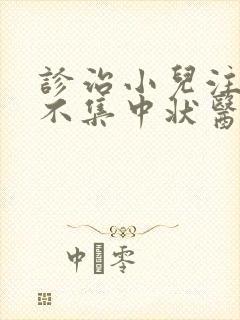 診治小兒注
不集中狀醫
中零